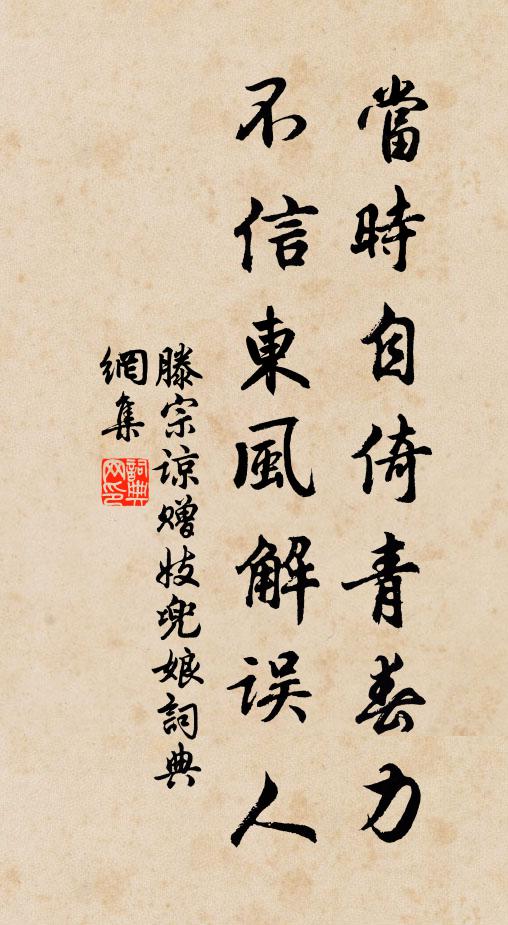 當時自倚青春力
不信東風解误人
滕宗谅赠妓兜娘詞典
網集
詞典
网印